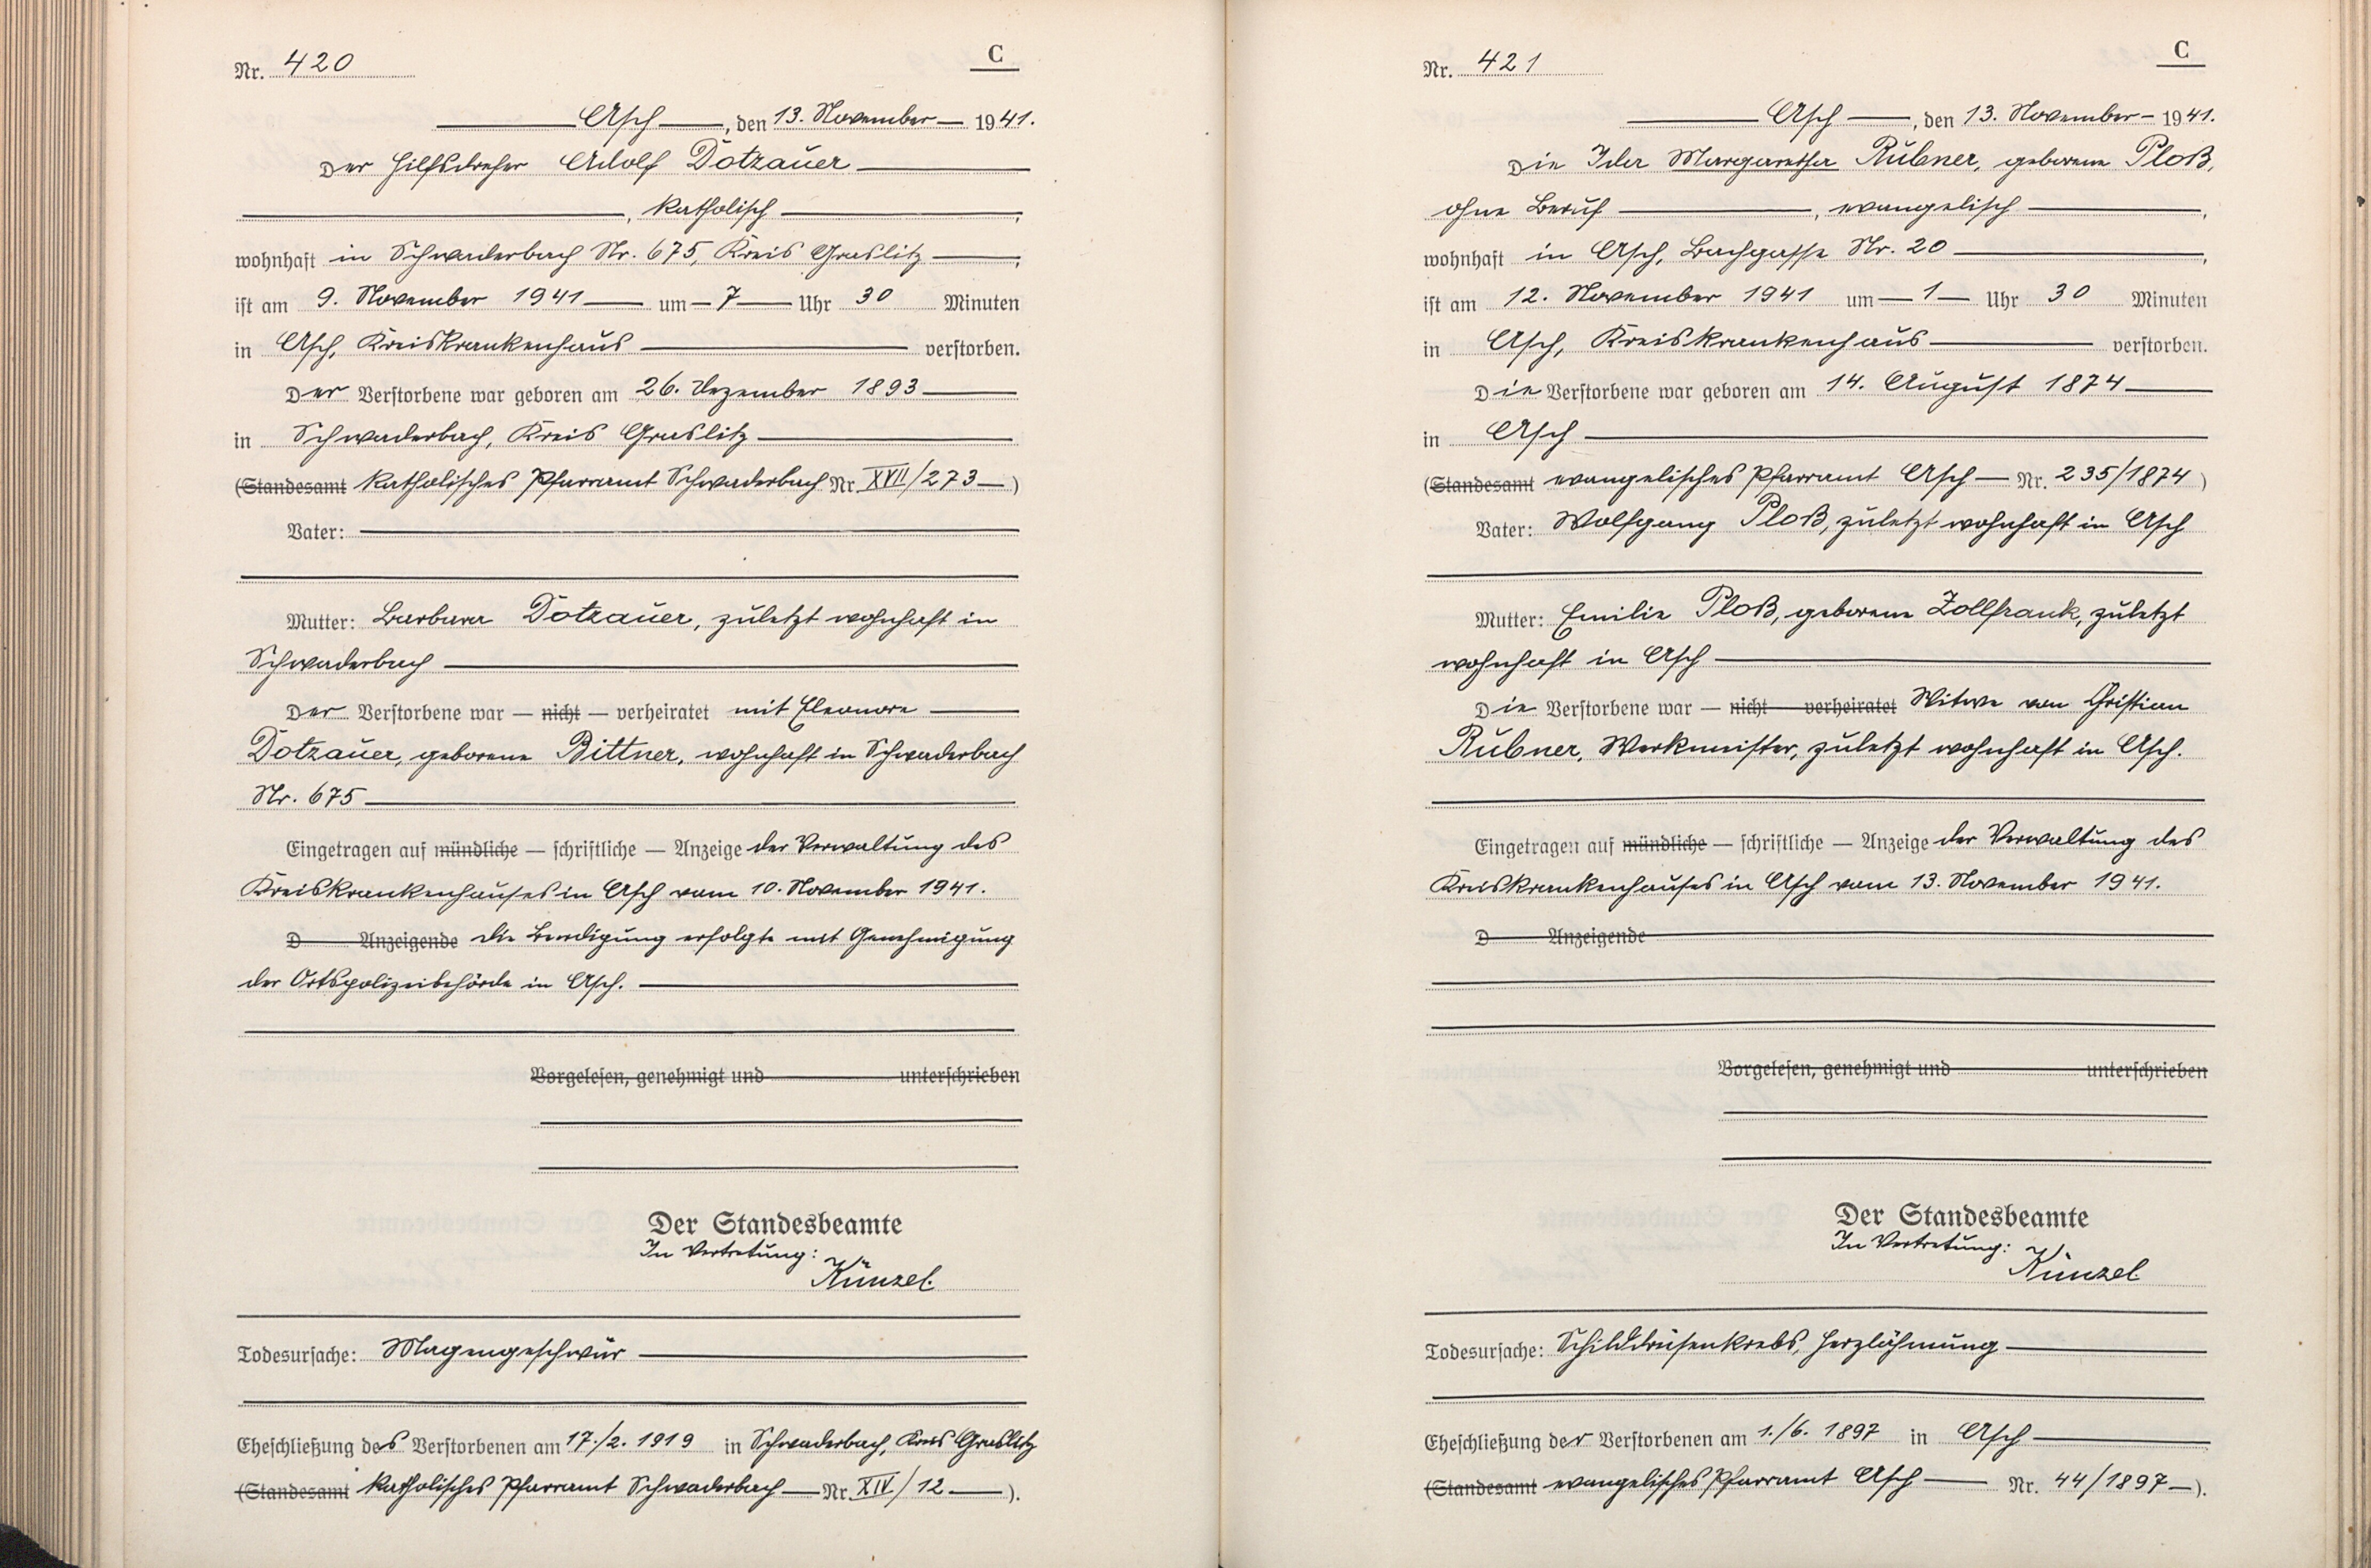 Nr. 420
C
Asch, den 13. November 1941.
Der Hilfsdreher Adolf Dotzauer
, katholisch ,
wohnhaft in Schwaderbach Nr. 675, Kreis Graslitz ,
ist am 9. November 1941 um 7 Uhr 30 Minuten
in Asch, Kreiskrankenhaus verstorben.
Der Verstorbene war geboren am 26. Dezember 1893
in Schwaderbach, Kreis Graslitz
(Standesamt katholisches Pfarramt Schwaderbach Nr. XVII/273)
Vater:
Mutter: Barbara Dotzauer, zuletzt wohnhaft in
Schwaderbach
Der Verstorbene war — nicht — verheiratet mit Eleonore
Dotzauer, geborene Bittner, wohnhaft in Schwaderbach
Nr. 675
Eingetragen auf mündliche — schriftliche — Anzeige der Verwaltung des
Kreiskrankenhauses in Asch vom 10. November 1941.
D Anzeigende Die Beerdigung erfolgte mit Genehmigung
der Ortspolizeibehörde in Asch.
Vorgelesen, genehmigt und unterschrieben
Der Standesbeamte
In Vertretung:
Künzel.
Todesursache: Magengeschwür
Eheschließung des Verstorbenen am 17./2. 1919 in Schwaderbach, Kreis Graslitz
(Standesamt katholisches Pfarramt Schwaderbach Nr. XIV/12).
Nr. 421
C
Asch, den 13. November 1941.
Die Ida Margaretha Rubner, geborene Ploß,
ohne Beruf , evangelisch ,
wohnhaft in Asch, Bachgasse Nr. 20 ,
ist am 12. November 1941 um 1 Uhr 30 Minuten
in Asch, Kreiskrankenhaus verstorben.
Die Verstorbene war geboren am 14. August 1874
in Asch
(Standesamt evangelisches Pfarramt Asch Nr. 235/1874)
Vater: Wolfgang Ploß, zuletzt wohnhaft in Asch
Mutter: Emilie Ploß, geborene Zollfrank, zuletzt
wohnhaft in Asch
Die Verstorbene war — nicht — verheiratet Witwe von Christian
Rubner, Werkmeister, zuletzt wohnhaft in Asch.
Eingetragen auf mündliche — schriftliche — Anzeige der Verwaltung des
Kreiskrankenhauses in Asch vom 13. November 1941.
D Anzeigende
Vorgelesen, genehmigt und unterschrieben
Der Standesbeamte
In Vertretung:
Künzel
Todesursache: Schilddrüsenkrebs, Herzlähmung
Eheschließung der Verstorbenen am 1./6. 1897 in Asch
(Standesamt evangelisches Pfarramt Asch Nr. 44/1897).